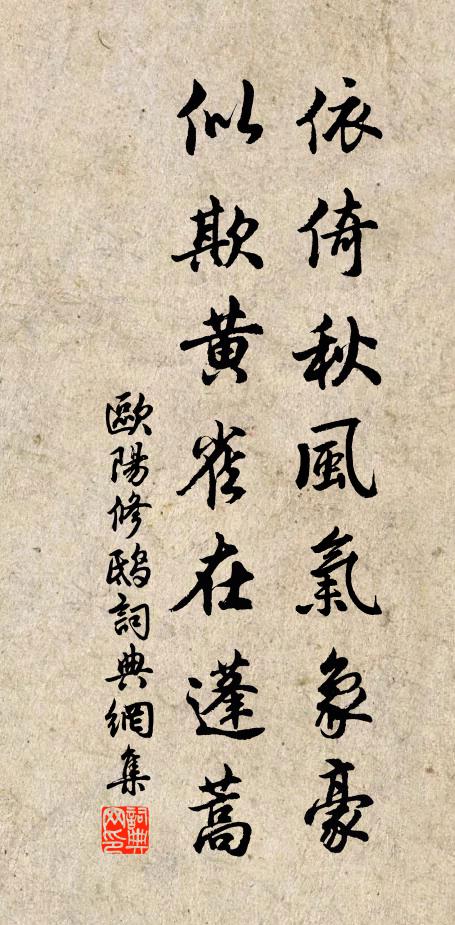 依倚秋風氣象豪
似欺黃雀在蓬蒿
歐陽修鴟詞典網集
詞典网印